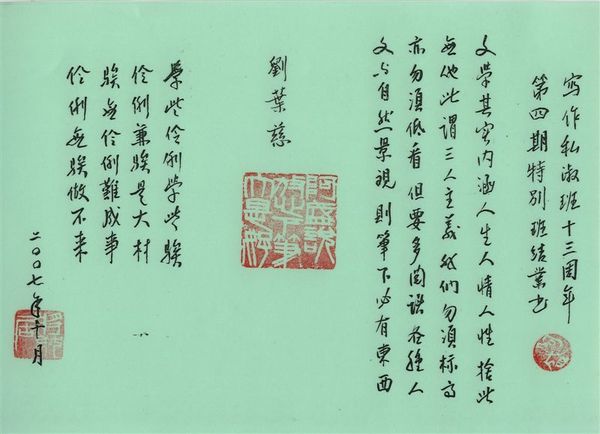 写作私淑班十三周年
第四期特別班結業书
文學其实内涵人生人情人性 捨此
無他此謂三人主義 我们勿須标高
亦勿須低看 但要多閱讀各種人
文与自然景观 則筆下必有東西
劉葉慈
學些伶俐學些騃
伶俐兼騃是大材
騃無伶俐難成事
伶俐無騃做不来
二〇〇七年十月